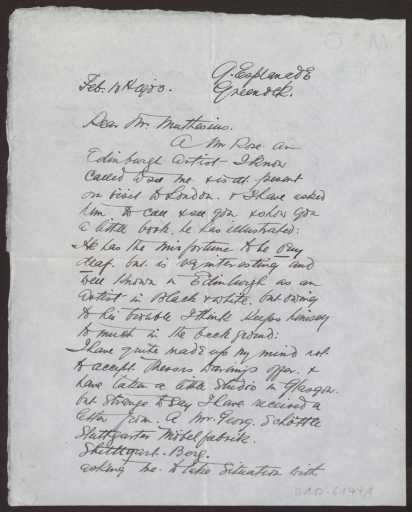 9. Esplanade
Greenock.
Feb. 12th 1903.
Dear Mr. Muthesius.
A Mr Rose an
Edinburgh Artist I know
called to see me & is at present
on visit to London. & I have asked
him to call & see you & show you
a little book, he has illustrated:
He has the misfortune to be very
deaf. but is vy interesting and
well known in Edinburgh as an
Artist in Black & white. but owing
to his trouble I think keeps himself
to much in the back ground:
I have quite made up my mind not
to accept Messrs Darlings offer. &
have taken a little studio in Glasgow.
but strange to say I have received a
letter from. A Mr. Georg. Schöttle
Stuttgarter Möbelfabrik.
Stuttgart - Berg.
asking me to take situation with